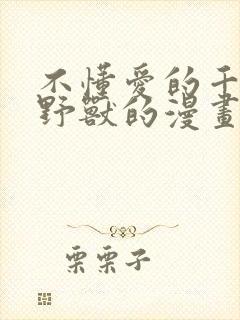 不懂愛的干
野獸的漫畫
栗栗子